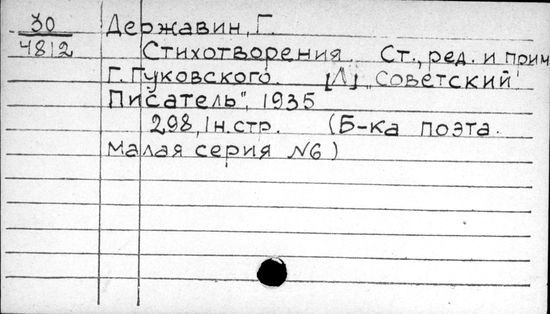 30 Державин, Г.
4812 Стихотворения. Ст., ред. и прим
Г. Гуковского. [Л] „Советский
Писатель", 1935
298, 1н.стр. (Б-ка поэта.
Малая серия №6)